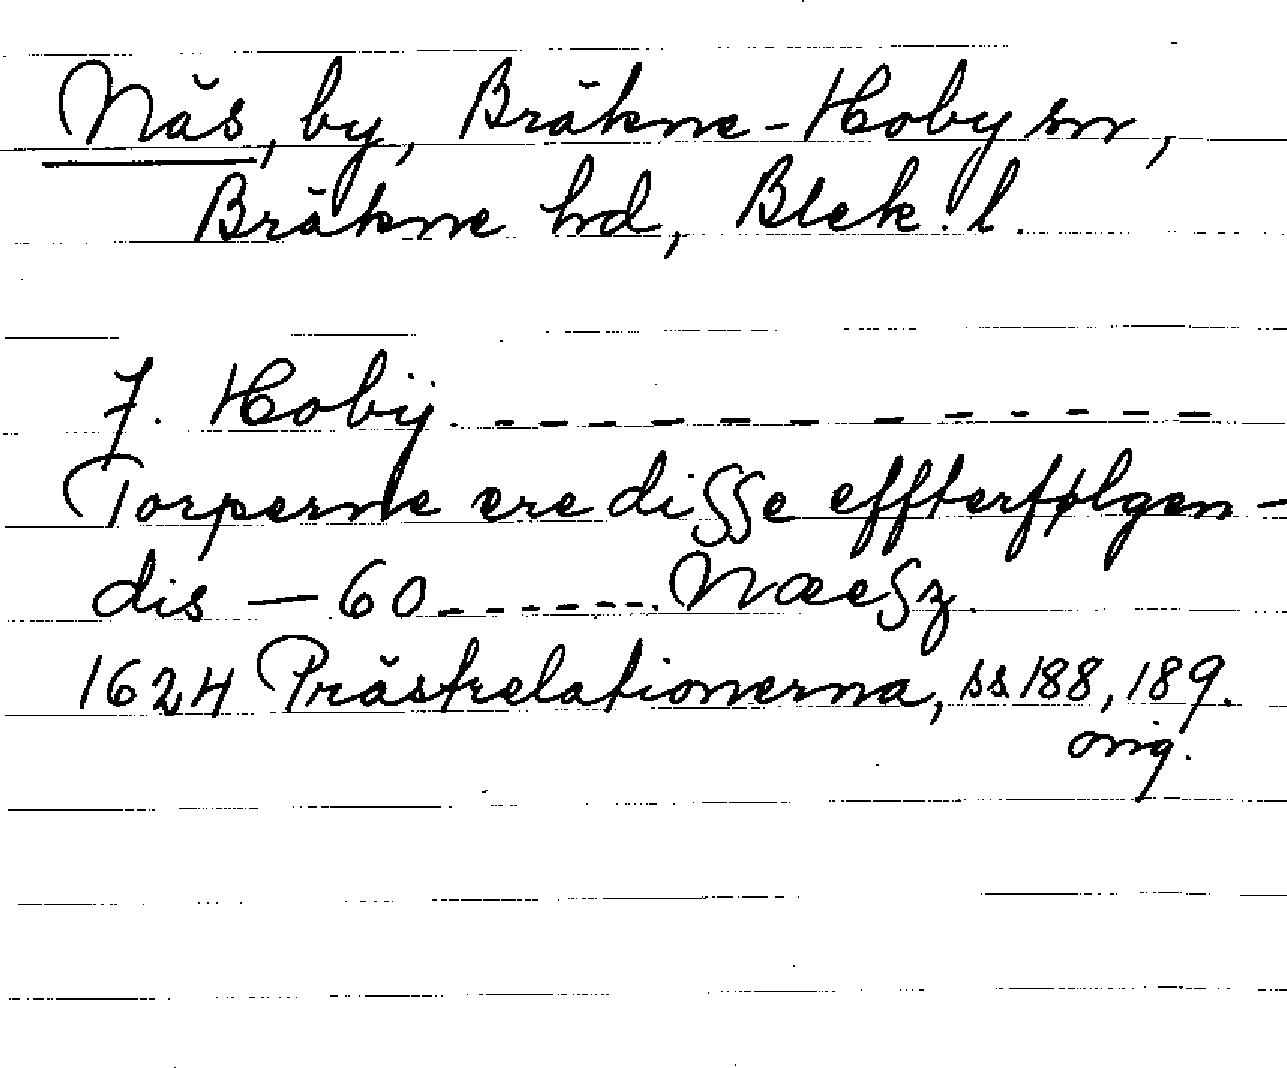 Näs, by, Bräkne-Hoby sn,
Bräkne hd, Blek. l.
J. Hobÿ. - - - - - - - - - - - -
Torperne ere disse effterfølgen-
dis — 60 - - - - - - . Næesz.
1624 Prästrelationerna, ss. 188, 189.
orig.